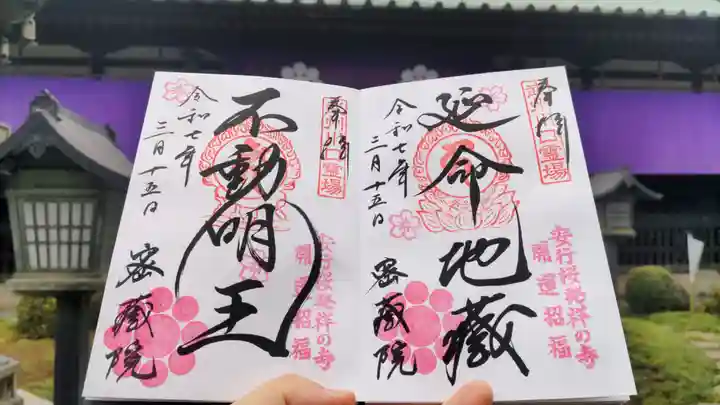 奉拝
霊場
延命地蔵
令和七年
三月十五日
安行桜発祥の寺
開運招福
密蔵院
奉拝
霊場
不動明王
令和七年
三月十五日
安行桜発祥の寺
開運招福
密蔵院